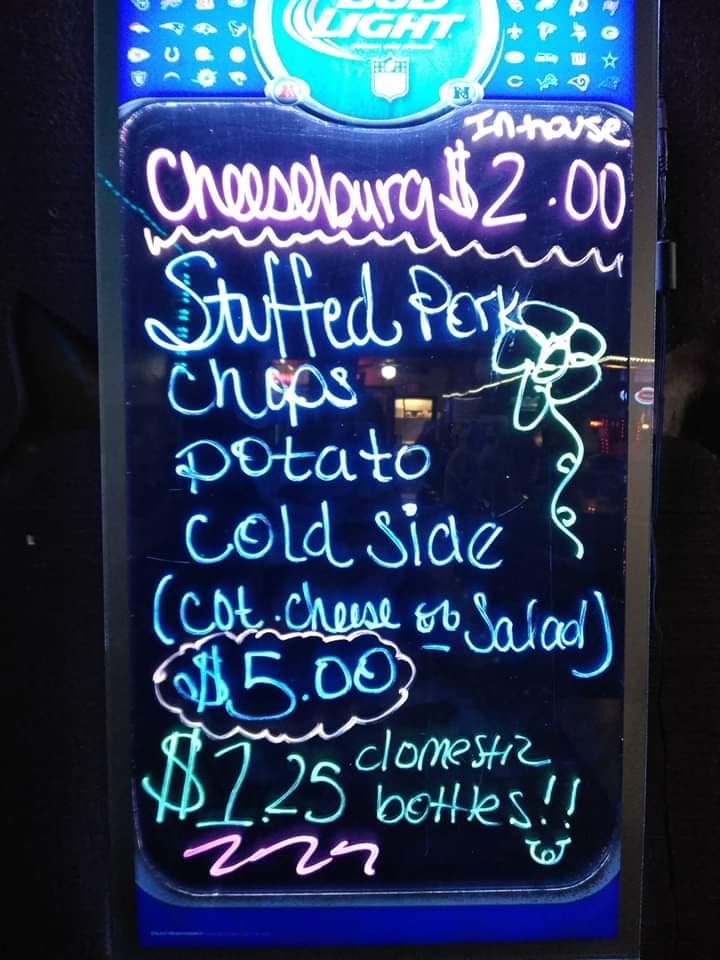 BUD
LIGHT
NFL
A N
In house
Cheeseburg $2.00
Stuffed Pork
chops
potato
cold side
(cot. cheese or salad)
$5.00
$1.25 domestic
bottles!!